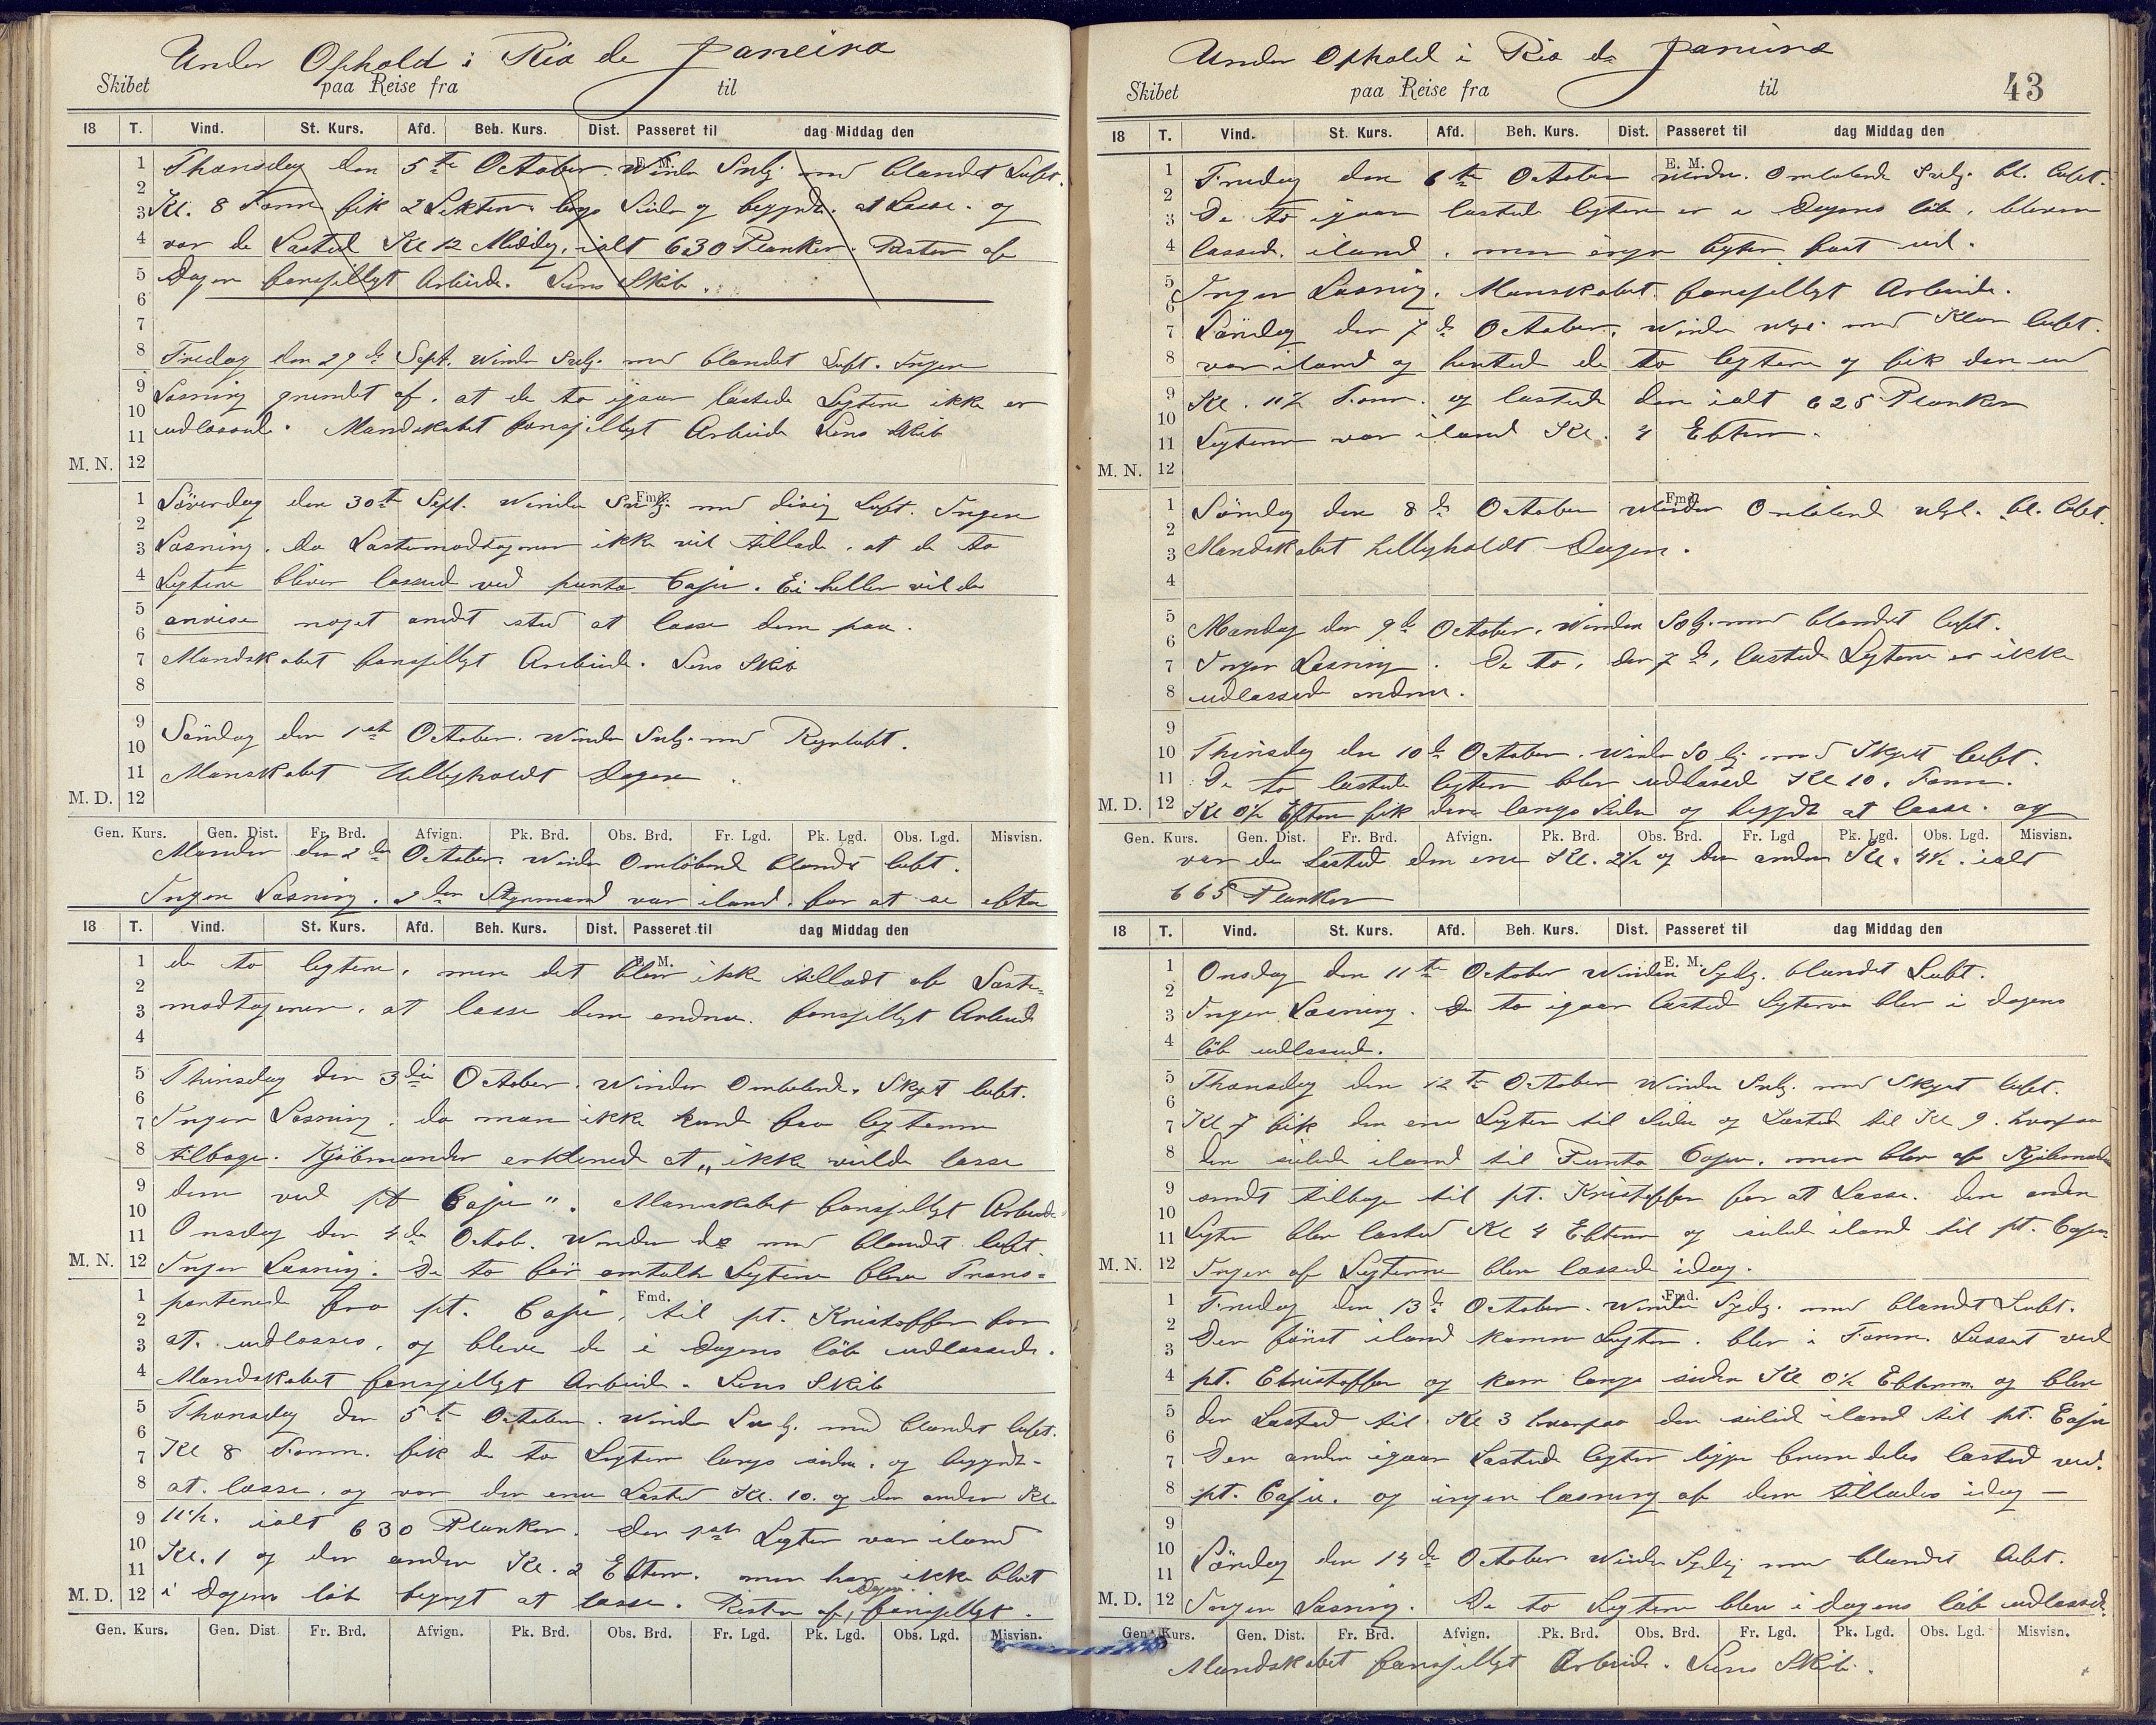 Under Ophold i Rio de Janeiro
Skibet paa Reise fra til
18 T. Vind. St. Kurs. Afd. Beh. Kurs. Dist. Passeret til dag Middag den
E. M.
1 Thorsdag den 5te October. Winden Svlg. med blandet Luft.
2
3 Kl. 8 Form fik 2 Lektere langs Siden og begynte at Losse. og
4 var de Lasted Kl 12 Middag, ialt 630 Planker. Resten af
5 Dagen forsjelligt Arbeide. Lens Skib.
6
7
8 Fredag den 29de Sept. Winden Svlg. med blandet Luft. Ingen
9 Losning grundet af, at de to igaar lastede Legtere ikke er
10
11 udlossed. Mandskabet forsjelligt Arbeide Lens Skib
M. N. 12
Fmd.
1 Löverdag den 30te Sept. Winden Svlg. med disig Luft. Ingen
2
3 Losning. da Lastemodtageren ikke vil tillade, at de to
4 Legtere bliver lossed ved punta Caju. Ei heller vil de
5 anvise noget andet sted at losse dem paa.
6
7 Mandskabet forsjelligt Arebeide. Lens Skib
8
9 Söndag den 1ste October. Winden Svlg. med Regnluft.
10
11 Manskabet Helligholdt Dagen
M. D. 12
Gen. Kurs. Gen. Dist. Fr. Brd. Afvign. Pk. Brd. Obs. Brd. Fr. Lgd. Pk. Lgd. Obs. Lgd. Misvisn.
Mandag den 2den October. Winden Omlöbend blandt luft.
Ingen Losning. 2den Styrmand var iland. for at se efter
18 T. Vind. St. Kurs. Afd. Beh. Kurs. Dist. Passeret til dag Middag den
E. M.
1 de to legtere, men det blev ikke tilladt af Laste-
2
3 modtageren, at losse dem endnu. forsjelligt Arbeid
4
5 Thirsdag den 3die October. Winden Omlobend. Skyet luft.
6
7 Ingen Losning. da man ikke kunde faa legterne
8 tilbage. Kjöbmanden erklered at "ikke vilde losse
9 dem ved pt Caju". Manskabet forsjelligt Arbeide
10
11 Onsdag den 4de Octob. Winden do med blandet luft.
M. N. 12 Ingen Losning. De to för omtalte Legtere bleve Trans-
Fmd.
1 porterede fra pt. Caju, til pt. Kristoffer for
2
3 at udlosses, og bleve de i Dagens löb udlossede.
4 Mandskabet forsjelligt Arbeide. Lens Skib
5 Thorsdag den 5te October. Winden Svlg. med blandet luft.
6
7 Kl 8 Form. fik de to Legtere langs siden, og begynte
8 at losse, og var den ene Lasted Kl. 10. og den anden Kl.
9 11½. ialt 630 Planker. Den 1ste Legter var iland
10 Kl. 1 og den anden Kl. 2 Efterm. men har ikke blit
11
Dagen
M. D. 12 i Dagens löb begynt at losse. Resten af, forsjelligt.
Gen. Kurs. Gen. Dist Fr. Brd. Afvign. Pk. Brd. Obs. Brd. Fr. Lgd. Pk. Lgd. Obs. Lgd. Misvisn.
Under Ophold i Rio de Janeiro
Skibet paa Reise fra til 43
18 T. Vind. St. Kurs. Afd. Beh. Kurs. Dist. Passeret til dag Middag den
E. M.
1 Fredag den 6te October Winden. Omlobende Svlg. bl. luft.
2
3 De to igaar lastede legtere er i Dagens löb, bleven
4 lossed. iland. men ingen legter faat ud.
5 Ingen Losning. Manskabet forsjelligt Arbeide.
6
7 Löndag den 7de October. Winden med Klar luft.
8 var iland og hented de to legtere og fik den en
9 Kl. 11½ Form. og lastede den ialt 625 Planker
10
11 Legteren var iland Kl. 4 Efterm.
M. N. 12
Fmd.
1 Söndag den 8de October Winden Omlobend bl. luft.
2
3 Mandskabet helligholdt Dagen.
4
5 Mandag den 9de October. Winden SOlg. med blandet luft.
6
7 Ingen Losning. De to, den 7de, lasted Legtere er ikke
8 udlossed endnu.
9
10 Thirsdag den 10de October. Winden SOlg med Skyet luft.
11 De to lastede legtere blev udlossed Kl 10. Form.
M. D. 12 Kl 0½ Efterm fik dem langs Siden og begynte at losse. og
Gen. Kurs. Gen. Dist. Fr. Brd. Afvign. Pk. Brd. Obs. Brd. Fr. Lgd Pk. Lgd. Obs. Lgd. Misvisn.
var de Lasted den ene Kl. 2½ og den anden Kl. 4½. ialt
665 Planker
18 T. Vind. St. Kurs. Afd. Beh. Kurs. Dist. Passeret til dag Middag den
E. M.
1 Onsdag den 11te October Winden Sydlg. blandet Luft.
2
3 Ingen Losning. De to igaar lasted Legterne blev i dagens
4 löb udlossed.
5 Thorsdag den 12te October Winden Svlg. med Skyet luft.
6
7 Kl 7 fik den ene Legter til Siden og Lasted til Kl 9. hvorpaa
8 den seilede iland til Punta Caju. men blev af Kjöbmanden
9 sendt tilbage til pt. Kristoffer for at Losse. den anden
10
11 Legter blev lasted Kl 4 Efterm og seilede iland til pt. Caju
M. N. 12 Ingen af Legterne blev lossede idag.
Fmd.
1 Fredag den 13de October. Winden Sydlg. med blandet Luft.
2
3 Den först iland komne Legter. blev i Form. Losset ved
4 pt. Christoffer og kom langs siden Kl 0½ Efterm. og blev
5 den Lasted til Kl 3 hvorpaa den seilede iland til pt. Caju
6
7 Den anden igaar Lastede legter ligger fremdeles lasted ved
8 pt. Caju. og ingen losning af dem tillades idag —
9
10 Löndag den 14de October Winden Sydlg med blandet luft.
11
M. D. 12 Ingen Losning. De to Legtere blev i dagens löb udlossed
Gen. Kurs. Gen. Dist. Fr. Brd. Afvign. Pk. Brd. Obs. Brd. Fr. Lgd. Pk. Lgd. Obs. Lgd. Misvisn.
Mandskabet forsjelligt Arbeide. Lens Skib.